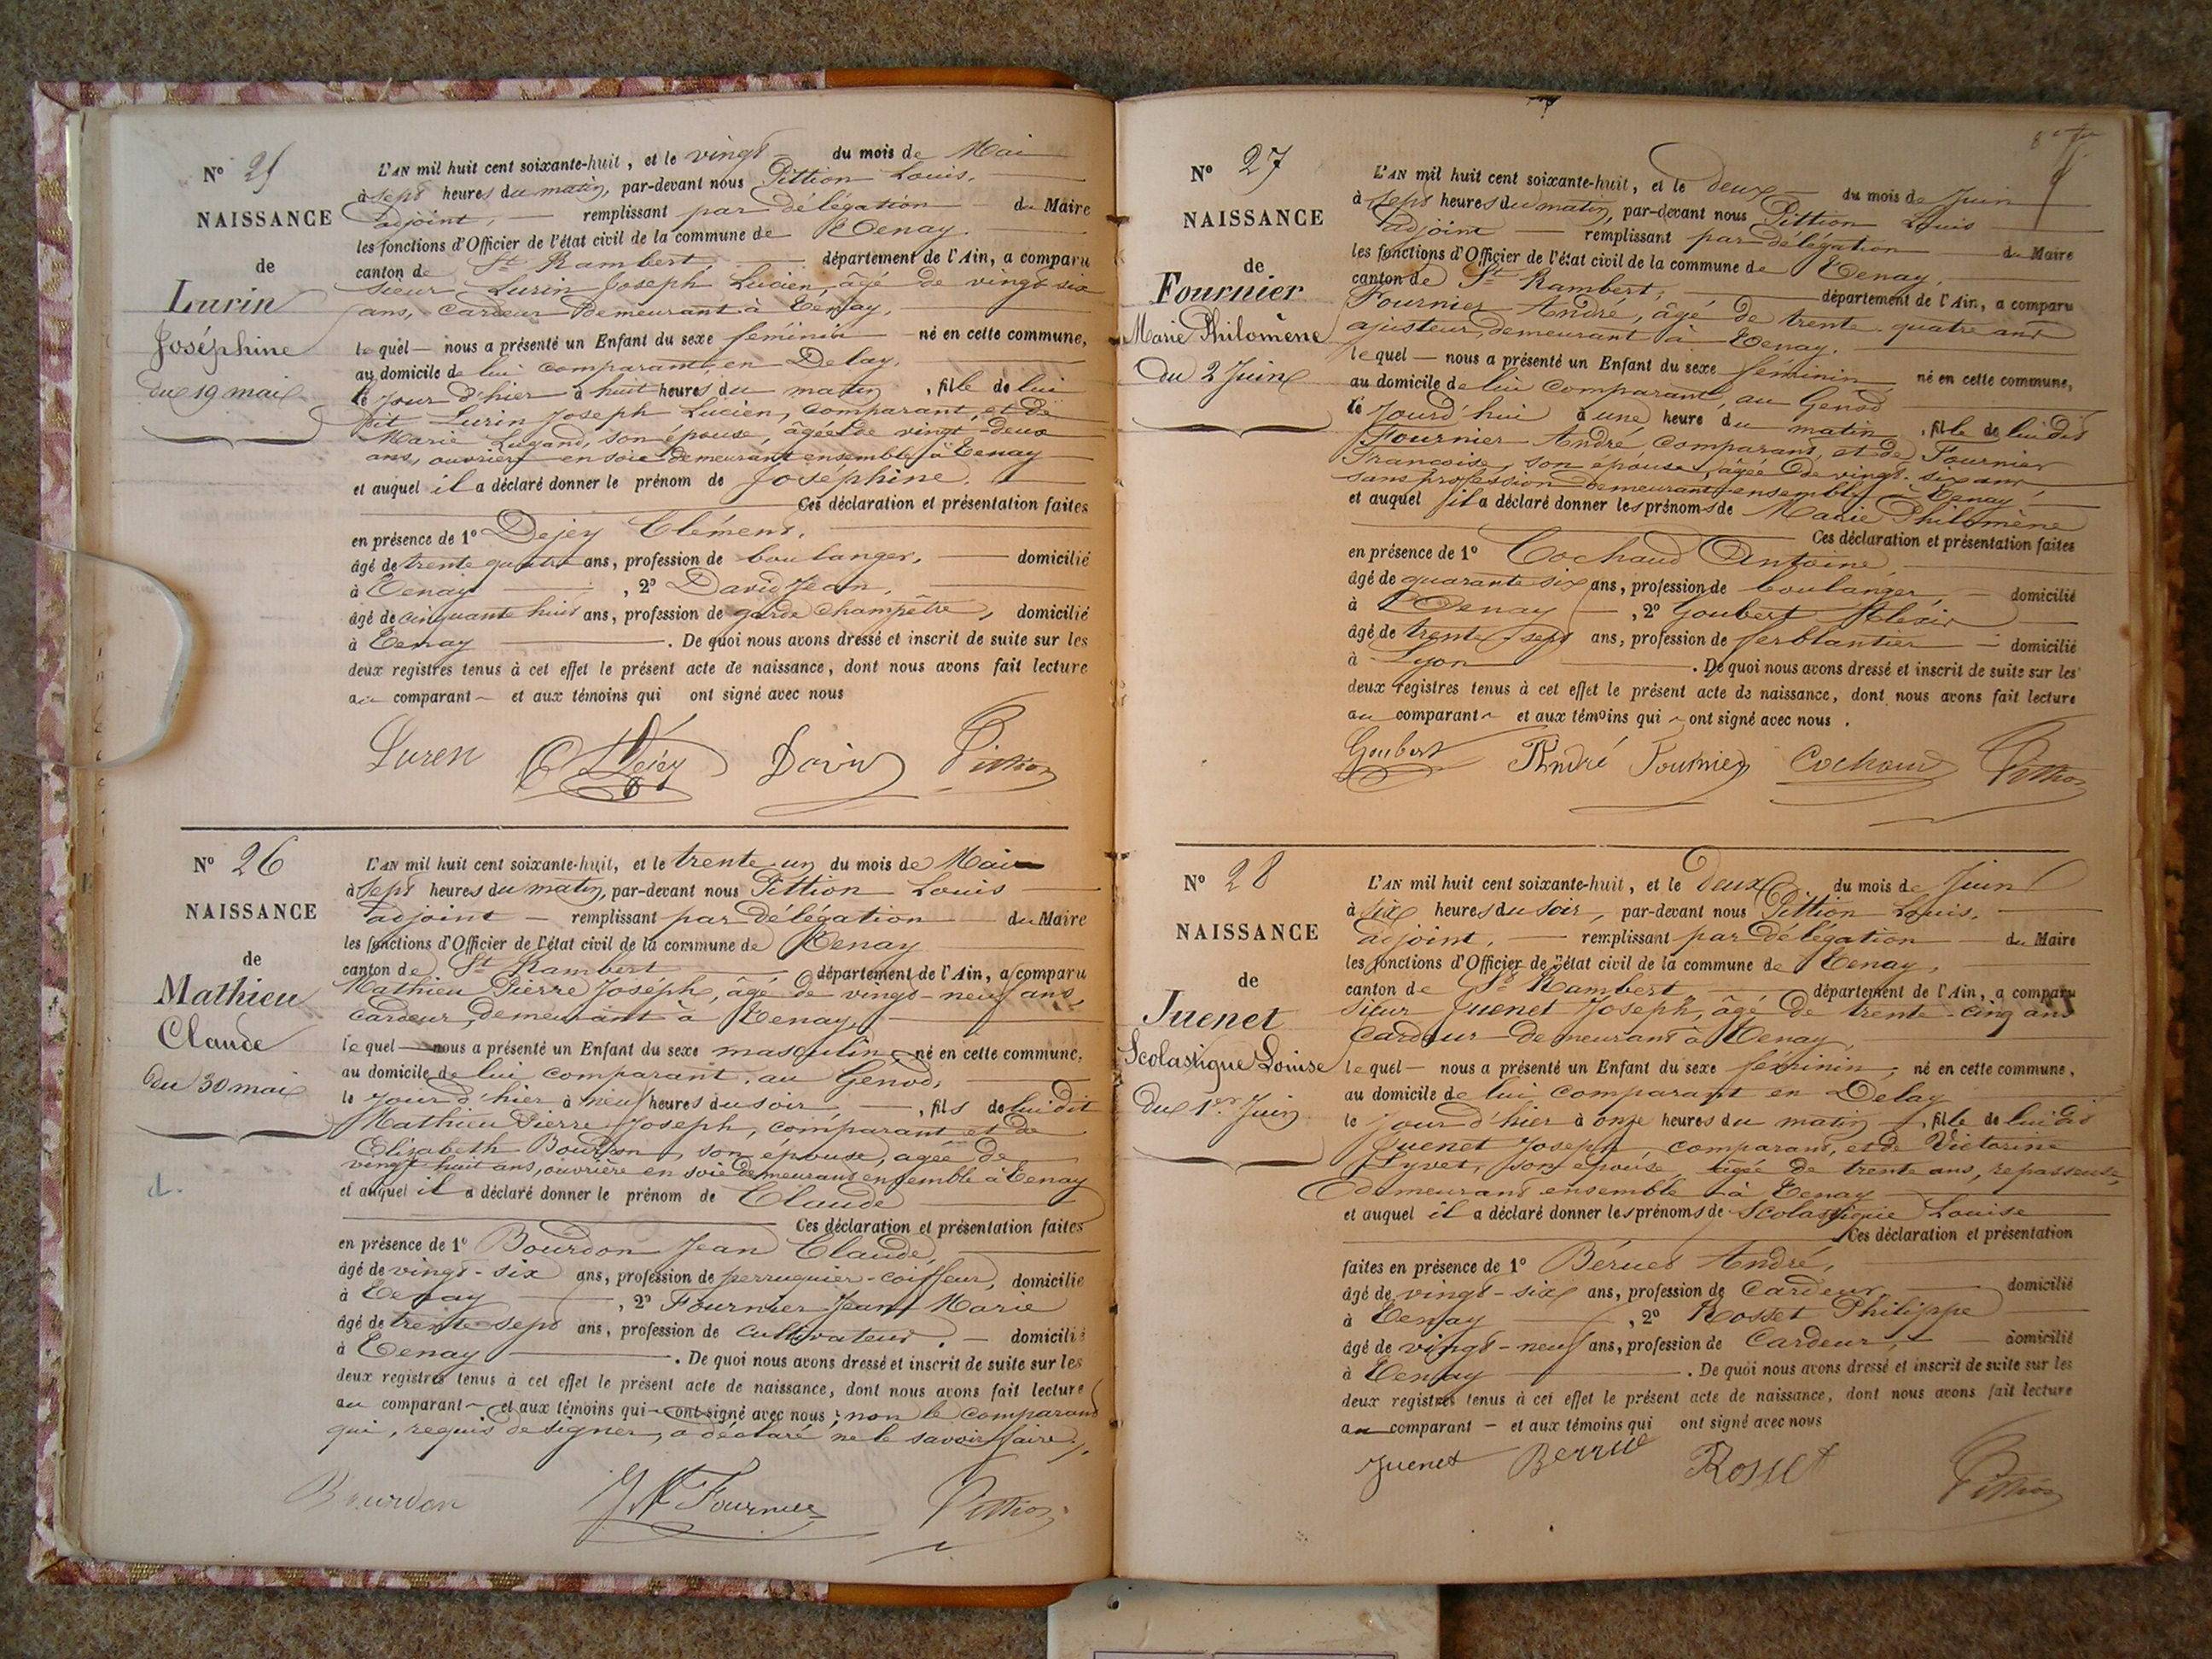 N° 25
NAISSANCE
de
Lurin
Joséphine
du 19 mai
L'AN mil huit cent soixante-huit, et le vingt du mois de Mai
à sept heures du matin, par-devant nous Pittion Louis,
adjoint, remplissant par délégation du Maire
les fonctions d'Officier de l'état civil de la commune de Tenay.
canton de St Rambert département de l'Ain, a comparu
sieur Lurin Joseph Lucien, âgé de vingt six
ans, cardeur demeurant à Tenay,
lequel nous a présenté un Enfant du sexe féminin né en cette commune,
au domicile de lui comparant, en Delay,
le jour d'hier à huit heures du matin, fille de lui
dit Lurin Joseph Lucien, comparant, et de
Marie Lugand, son épouse, âgée de vingt-deux
ans, ouvrière en soie demeurant ensemble à Tenay
et auquel il a déclaré donner le prénom de Joséphine.
Ces déclaration et présentation faites
en présence de 1° Dejey Clément,
âgé de trente quatre ans, profession de boulanger, domicilié
à Tenay, 2° David Jean,
âgé de cinquante huit ans, profession de garde champêtre, domicilié
à Tenay. De quoi nous avons dressé et inscrit de suite sur les
deux registres tenus à cet effet le présent acte de naissance, dont nous avons fait lecture
au comparant et aux témoins qui ont signé avec nous
Luren C Dejey David Pittion
N° 26
NAISSANCE
de
Mathieu
Claude
du 30 mai
d.
L'AN mil huit cent soixante-huit, et le trente-un du mois de Mai
à sept heures du matin, par-devant nous Pittion Louis
adjoint remplissant par délégation du Maire
les fonctions d'Officier de l'état civil de la commune de Tenay
canton de St Rambert département de l'Ain, a comparu
Mathieu Pierre Joseph, âgé de vingt-neuf ans,
cardeur, demeurant à Tenay,
lequel nous a présenté un Enfant du sexe masculin, né en cette commune,
au domicile de lui comparant, au Genod,
le jour d'hier à neuf heures du soir, fils de lui dit
Mathieu Pierre Joseph, comparant et de
Elisabeth Bourdon, son épouse, agée de
vingt huit ans, ouvrière en soie demeurant ensemble à Tenay
et auquel il a déclaré donner le prénom de Claude
Ces déclaration et présentation faites
en présence de 1° Bourdon Jean Claude,
âgé de vingt-six ans, profession de perruquier-coiffeur, domicilié
à Tenay, 2° Fournier Jean Marie
âgé de trente-sept ans, profession de cultivateur, domicilié
à Tenay. De quoi nous avons dressé et inscrit de suite sur les
deux registres tenus à cet effet le présent acte de naissance, dont nous avons fait lecture
au comparant et aux témoins qui ont signé avec nous, non le comparant
qui, requis de signer, a déclaré ne le savoir faire.
Bourdon JM Fournier Pittion
N° 27
NAISSANCE
de
Fournier
Marie Philomène
du 2 Juin
L'AN mil huit cent soixante-huit, et le deux du mois de Juin
à sept heures du matin, par-devant nous Pittion Louis
adjoint remplissant par délégation du Maire
les fonctions d'Officier de l'état civil de la commune de Tenay,
canton de St Rambert, département de l'Ain, a comparu
Fournier André, âgé de trente quatre ans
ajusteur, demeurant à Tenay.
lequel nous a présenté un Enfant du sexe féminin né en cette commune,
au domicile de lui comparant, au Genod
le jourd'hui à une heure du matin, fille de lui dit
Fournier André, comparant, et de Fournier
Françoise, son épouse, âgée de vingt-six ans
sans profession demeurant ensemble à Tenay,
et auquel il a déclaré donner les prénoms de Marie Philomène
Ces déclaration et présentation faites
en présence de 1° Cochaud Antoine,
âgé de quarante six ans, profession de boulanger, domicilié
à Tenay, 2° Goubert Alexis
âgé de trente-sept ans, profession de ferblantier domicilié
à Lyon. De quoi nous avons dressé et inscrit de suite sur les
deux registres tenus à cet effet le présent acte de naissance, dont nous avons fait lecture
au comparant et aux témoins qui ont signé avec nous.
Goubert André Fournier Cochaud Pittion
N° 28
NAISSANCE
de
Juenet
Scolastique Louise
du 1er Juin
L'AN mil huit cent soixante-huit, et le deux du mois de Juin
à six heures du soir, par-devant nous Pittion Louis,
adjoint, remplissant par délégation du Maire
les fonctions d'Officier de l'état civil de la commune de Tenay,
canton de St Rambert département de l'Ain, a comparu
sieur Juenet Joseph, âgé de trente-cinq ans
cardeur demeurant à Tenay,
lequel nous a présenté un Enfant du sexe féminin, né en cette commune,
au domicile de lui comparant en Delay
le jour d'hier à onze heures du matin, fille de lui dit
Juenet Joseph, comparant, et de Victorine
Lyvet, son épouse, âgée de trente ans, repasseuse,
demeurant ensemble à Tenay
et auquel il a déclaré donner les prénoms de Scolastique Louise
Ces déclaration et présentation
faites en présence de 1° Béruet André,
âgé de vingt-six ans, profession de Cardeur domicilié
à Tenay, 2° Rosset Philippe
âgé de vingt-neuf ans, profession de Cardeur, domicilié
à Tenay. De quoi nous avons dressé et inscrit de suite sur les
deux registres tenus à cet effet le présent acte de naissance, dont nous avons fait lecture
au comparant et aux témoins qui ont signé avec nous
Juenet Berrue Rosset Pittion